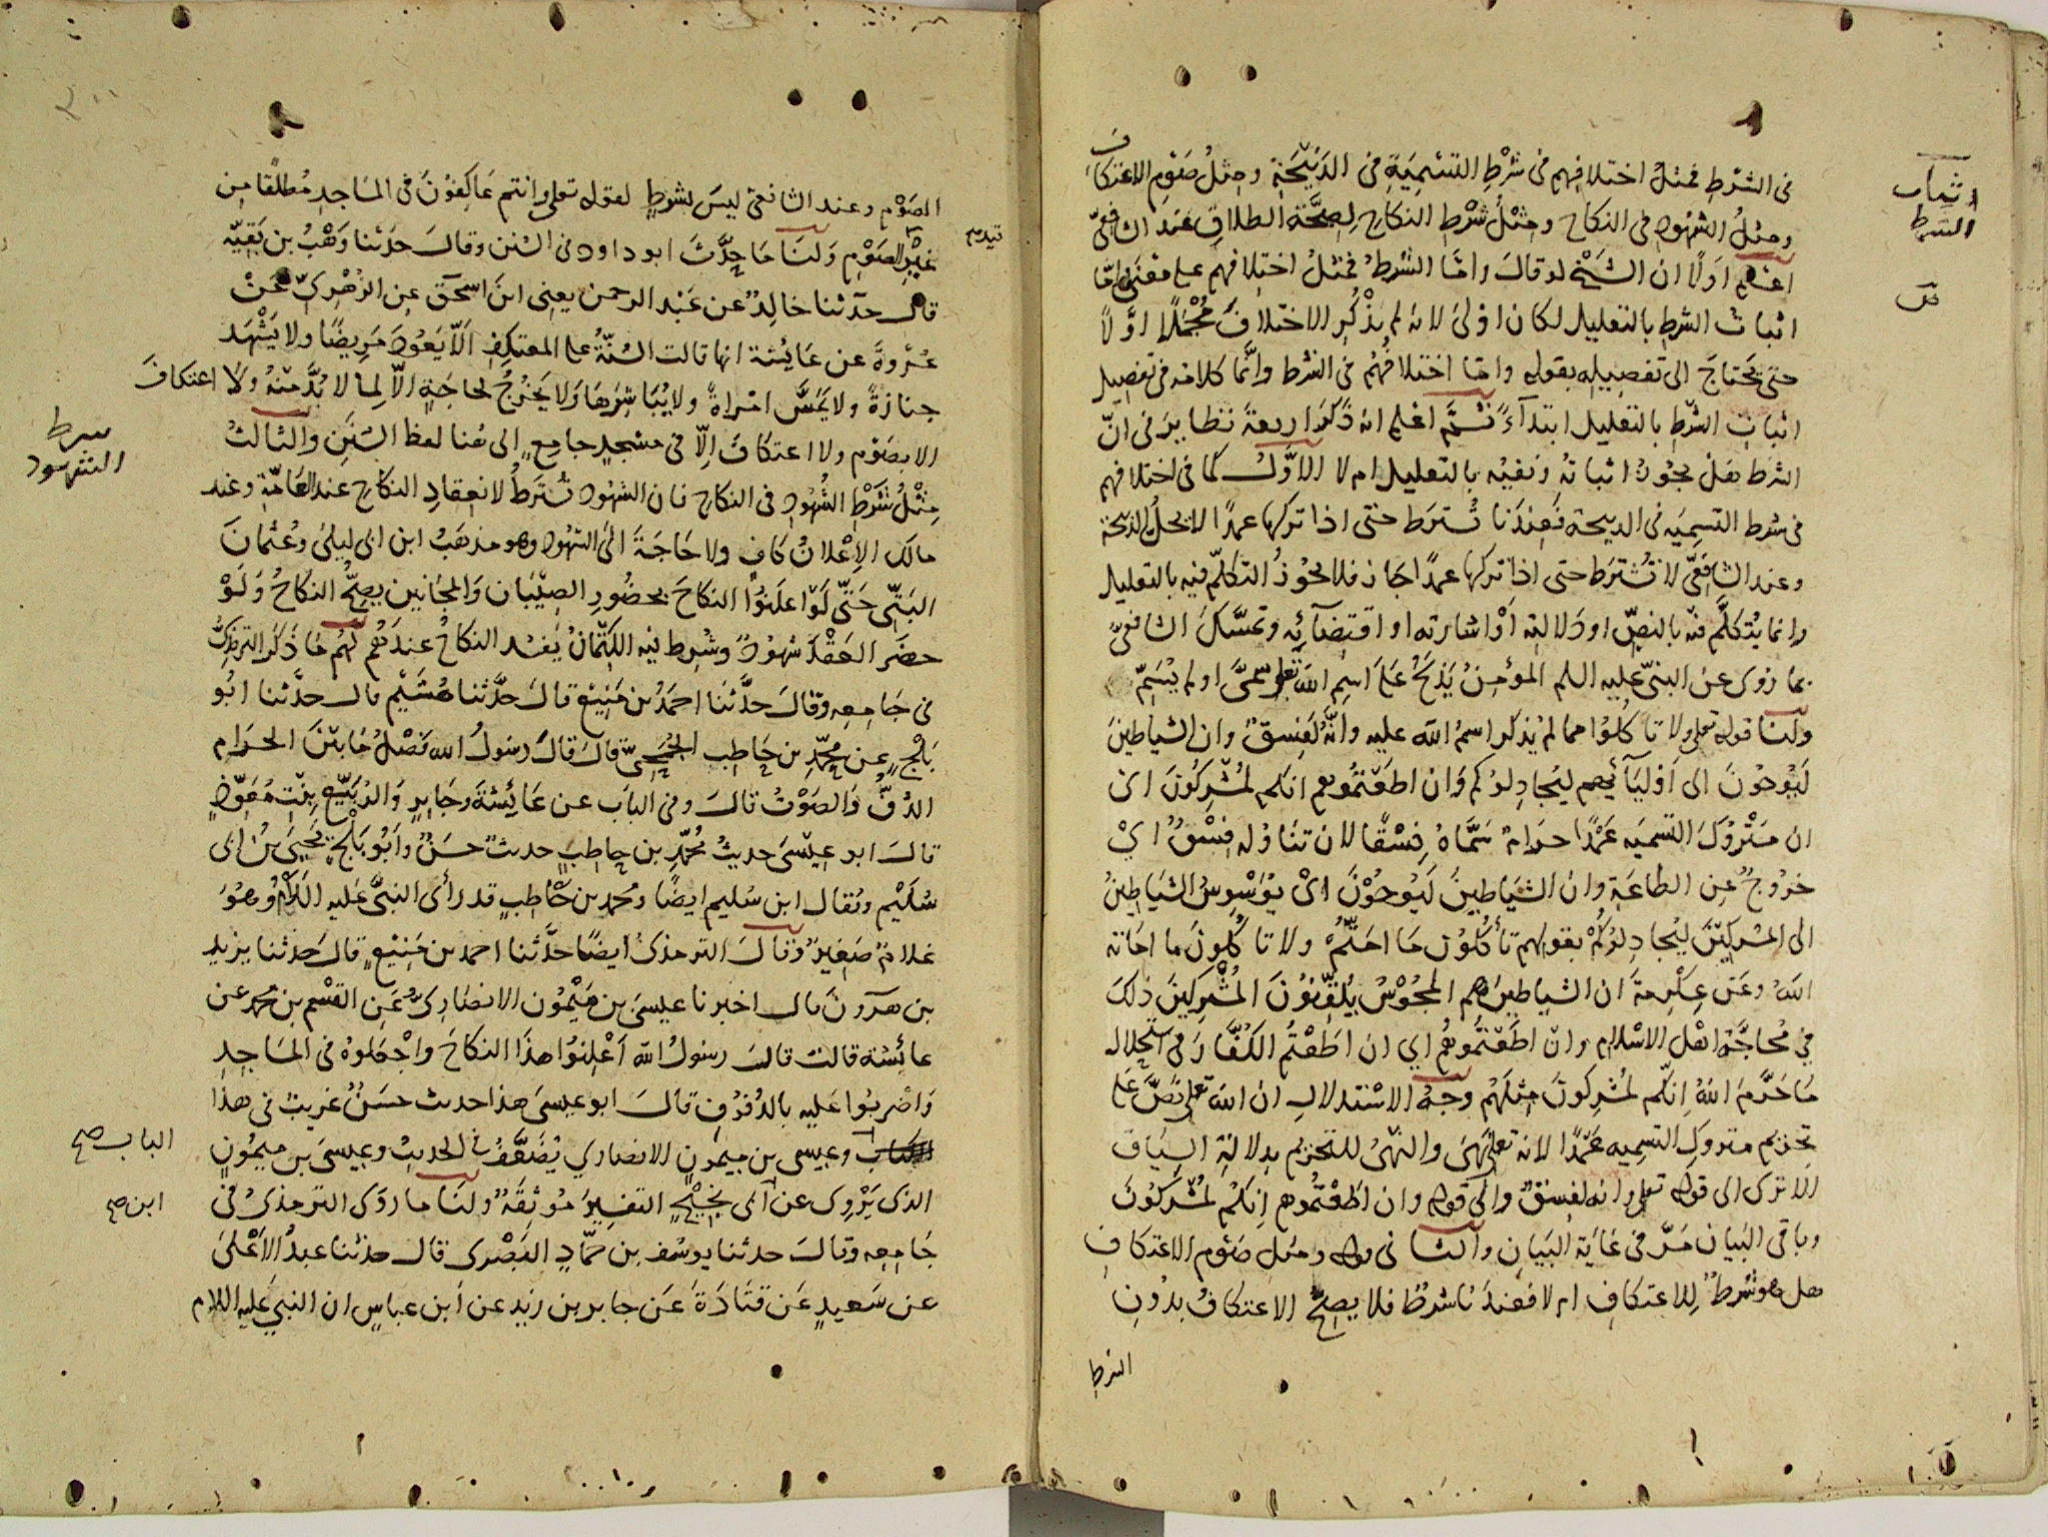 في الشرط فمثل اختلافهم في شرط التسمية في الذبيحة ومثل صوم الاعتكاف
ومثل الشهود في النكاح ومثل شرط النكاح لصحة الطلاق عند الشافعي
اعلم اولا ان الشيخ لو قال واما الشرط فمثل اختلافهم على معنى اما
اثبات الشرط بالتعليل لكان اولى لانه لم يذكر الاختلاف مجملا اولا
حتى يحتاج الى تفصيله بقوله واما اختلافهم في الشرط وانما كلامه في تفصيل
اثبات الشرط بالتعليل ابتداء ثم اعلم انه ذكر اربعة نظاير في ان
الشرط هل يجوز اثباته ونفيه بالتعليل ام لا الاول كما في اختلافهم
في شرط التسمية في الذبيحة فعندنا تشترط حتى اذا تركها عمدا لا يحل الذبيحة
وعند الشافعي لا تشترط حتى اذا تركها عمدا جاز فلا يجوز التكلم فيه بالتعليل
وانما يتكلم فيه بالنص او دلالته او اشارته او اقتضائه وتمسك الشافعي
بما روى عن النبي عليه السلم المؤمن يذبح على اسم الله تعلى سمى او لم يسم
ولنا قوله تعلى ولا تاكلوا مما لم يذكر اسم الله عليه وانه لفسق وان الشياطين
ليوحون الى اوليائهم ليجادلوكم وان اطعتموهم انكم لمشركون اى
ان متروك التسمية عمدا حرام سماه فسقا لان تناوله فسق اي
خروج عن الطاعة وان الشياطين ليوحون اى يوسوس الشياطين
الى المشركين ليجادلوكم بقولهم تأكلون ما امتم ولا تاكلون ما اماته
الله وعن عكرمة ان الشياطين هم المجوس يلقنون المشركين ذلك
في محاجة اهل الاسلام وان اطعتموهم اي ان اطعتم الكفار في استحلال
ما حرم الله انكم لمشركون مثلهم وجه الاستدلال ان الله تعلى نص على
تحريم متروك التسمية عمدا لانه تعلى نهى والنهى للتحريم بدلالة السياق
الا ترى الى قوله تعلى وانه لفسق والى قوله وان اطعتموهم انكم لمشركون
وباقي البيان مر في غاية البيان والثا في قوله ومثل صوم الاعتكاف
هل هو شرط للاعتكاف ام لا فعندنا شرط فلا يصح الاعتكاف بدون
الشرط
اثبات
الشرط
الصوم وعند الشافعي ليس بشرط لقوله تعلى وانتم عاكفون في المساجد مطلقا من
غير الصوم ولنا ما حدث ابو داود في السنن وقال حدثنا وهب بن بقية
قال حدثنا خالد عن عبد الرحمن يعنى ابن اسحق عن الزهري عن
عروة عن عايشة انها قالت السنة على المعتكف الا يعود مريضا ولا يشهد
جنازة ولا يمس امراة ولا يباشرها ولا يخرج لحاجة الا لما لا بد منه ولا اعتكاف
الا بصوم ولا اعتكاف الا في مسجد جامع الى هنا لفظ السنن والثالث
مثل شرط الشهود في النكاح فان الشهود تشترط لانعقاد النكاح عند العامة وعند
مالك الاعلان كاف ولا حاجة الى الشهود وهو مذهب ابن ابى ليلى وعثمان
البتي حتى لو اعلنوا النكاح بحضور الصبيان والمجانين يصح النكاح ولو
حضر العقد شهود وشرط فيه الكتمان يفسد النكاح عندهم لهم ما ذكر الترمذي
في جامعه وقال حدثنا احمد بن منيع قال حدثنا هشيم قال حدثنا ابو
بلج عن محمد بن حاطب الجمحي قال قال رسول الله فصل ما بين الحرام
الدف والصوت قال وفي الباب عن عائشة وجابر والربيع بنت معوذ
قال ابو عيسى حديث محمد بن حاطب حديث حسن وابو بلج يحيى بن ابى
سليم ويقال ابن سليم ايضا ومحمد بن حاطب قد رأى النبي عليه السلام وهو
غلام صغير وقال الترمذى ايضا حدثنا احمد بن منيع قال حدثنا يزيد
بن هرون قال اخبرنا عيسى بن ميمون الانصارى عن القسم بن محمد عن
عائشة قالت قال رسول الله اعلنوا هذا النكاح واجعلوه في المساجد
واضربوا عليه بالدفوف قال ابو عيسى هذا حديث حسن غريب في هذا
الكتاب وعيسى بن ميمون الانصاري يضعف في الحديث وعيسى بن ميمون
الذى يروى عن ابى نجيح التفسير هو ثقة ولنا ما روى الترمذى في
جامعه وقال حدثنا يوسف بن حماد البصرى قال حدثنا عبد الاعلى
عن سعيد عن قتادة عن جابر بن زيد عن ابن عباس ان النبي عليه السلام
شرط
الشهود
الباب صح
ابن صح